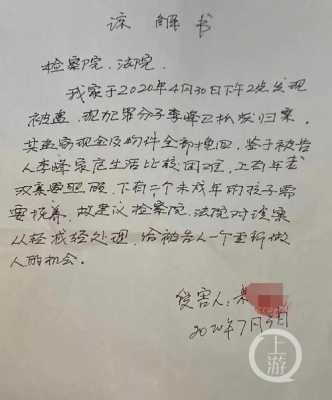 谅解书
检察院、法院.
我家于2020年4月30日下午2点发现
被盗,现犯罪分子李峰已抓获归案.
其盗窃现金及物件全部追回,鉴于被告
人李峰家庭生活比较困难,上有年老
双亲要照顾,下有二个未成年的孩子需
要抚养,故建议检察院、法院对该案
从轻或轻处理,给被告人一个重新做
人的机会。
受害人:
2020年7月
上游